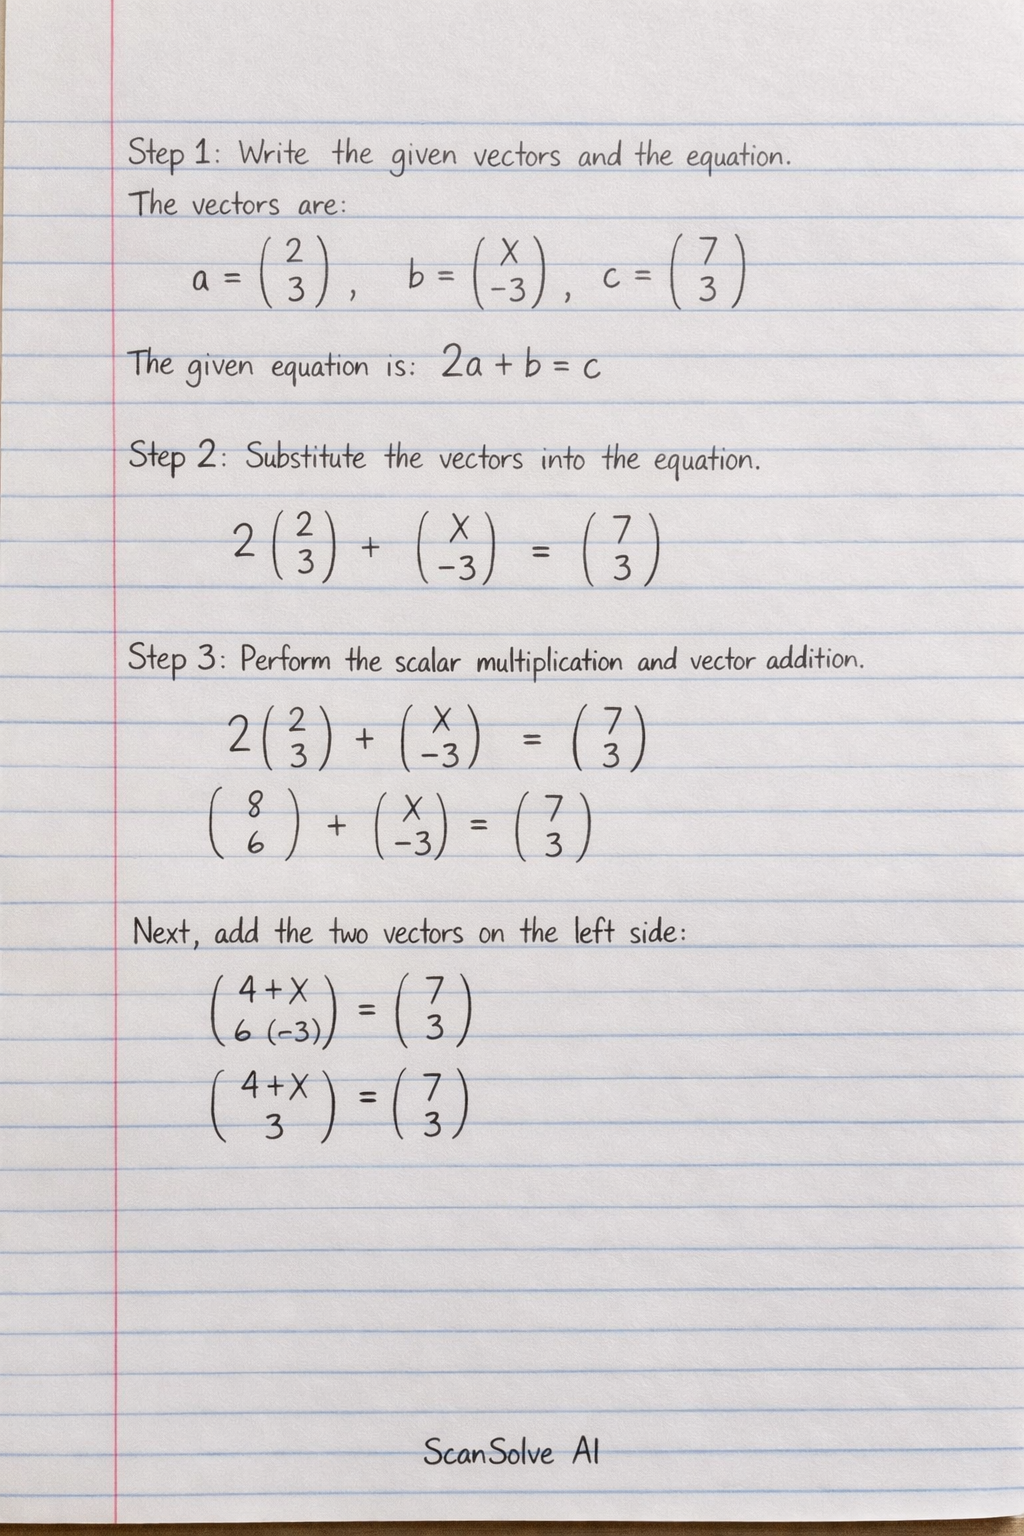 Step 1: Write the given vectors and the equation.
The vectors are:
a = (2 3), b = (x -3), c = (7 3)
The given equation is: 2a + b = c
Step 2: Substitute the vectors into the equation.
2 (2 3) + (x -3) = (7 3)
Step 3: Perform the scalar multiplication and vector addition.
2 (2 3) + (x -3) = (7 3)
(8 6) + (x -3) = (7 3)
Next, add the two vectors on the left side:
(4+x 6 (-3)) = (7 3)
(4+x 3) = (7 3)
ScanSolve AI